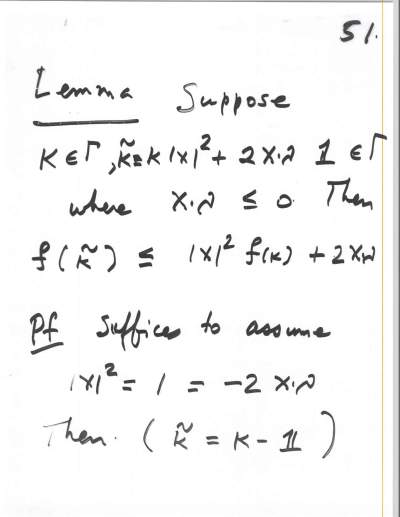 51.
Lemma Suppose
K ∈ Γ, k̃ = k|x|² + 2x·ν 𝟙 ∈ Γ
where x·ν ≤ 0. Then
f(k̃) ≤ |x|² f(k) + 2x·ν
Pf Suffices to assume
|x|² = 1 = -2x·ν
Then. (k̃ = k - 𝟙)